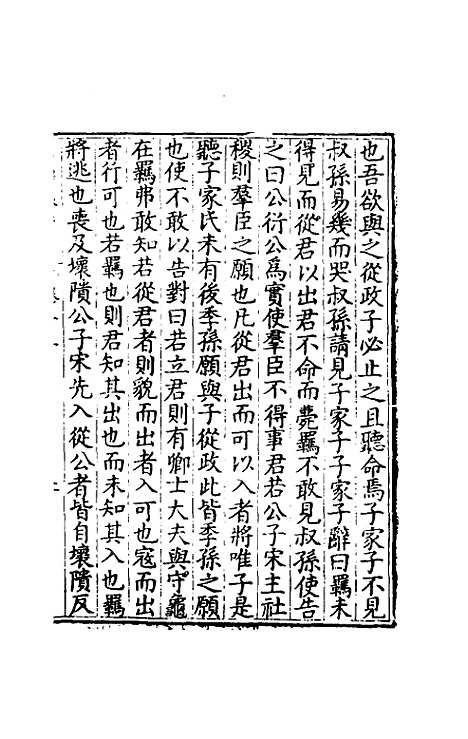 也吾欲與之從政子必止之且聽命焉子家子不見
叔孫易幾而哭叔孫請見子家子子家子辭曰羈未
得見而從君以出君不命而薨羈不敢見叔孫使告
之曰公衍公爲實使羣臣不得事君若公子宋主社
稷則羣臣之願也凡從君出而可以入者將唯子是
聽子家氏未有後季孫願與子從政此皆季孫之願
也使不敢以告對曰若立君則有卿士大夫與守龜
在羈弗敢知若從君者則貌而出者入可也寇而出
者行可也若羈也則君知其出也而未知其入也羈
將逃也喪及壞隤公子宋先入從公者皆自壞隤反